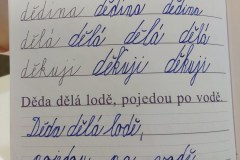 dědina dědina dědina
dělá dělá dělá dělá
děkuji děkuji děkuji
Děda dělá lodě, pojedou po vodě.
Děda dělá lodě,
pojedou po vodě